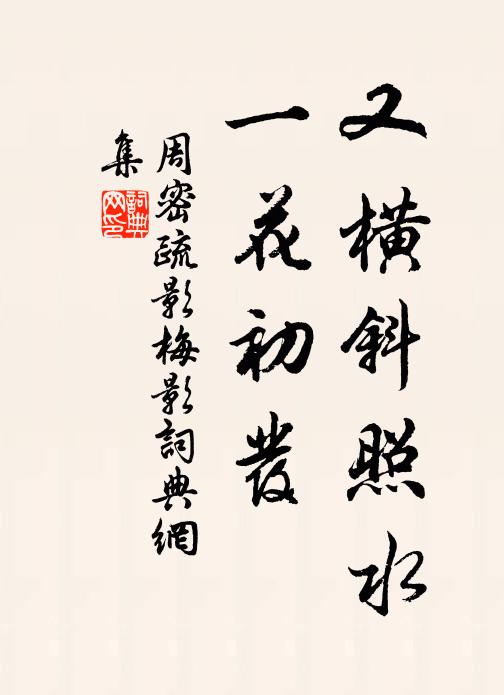 又橫斜照水
一花初發
周密疏影梅影詞典網
集
詞典網印